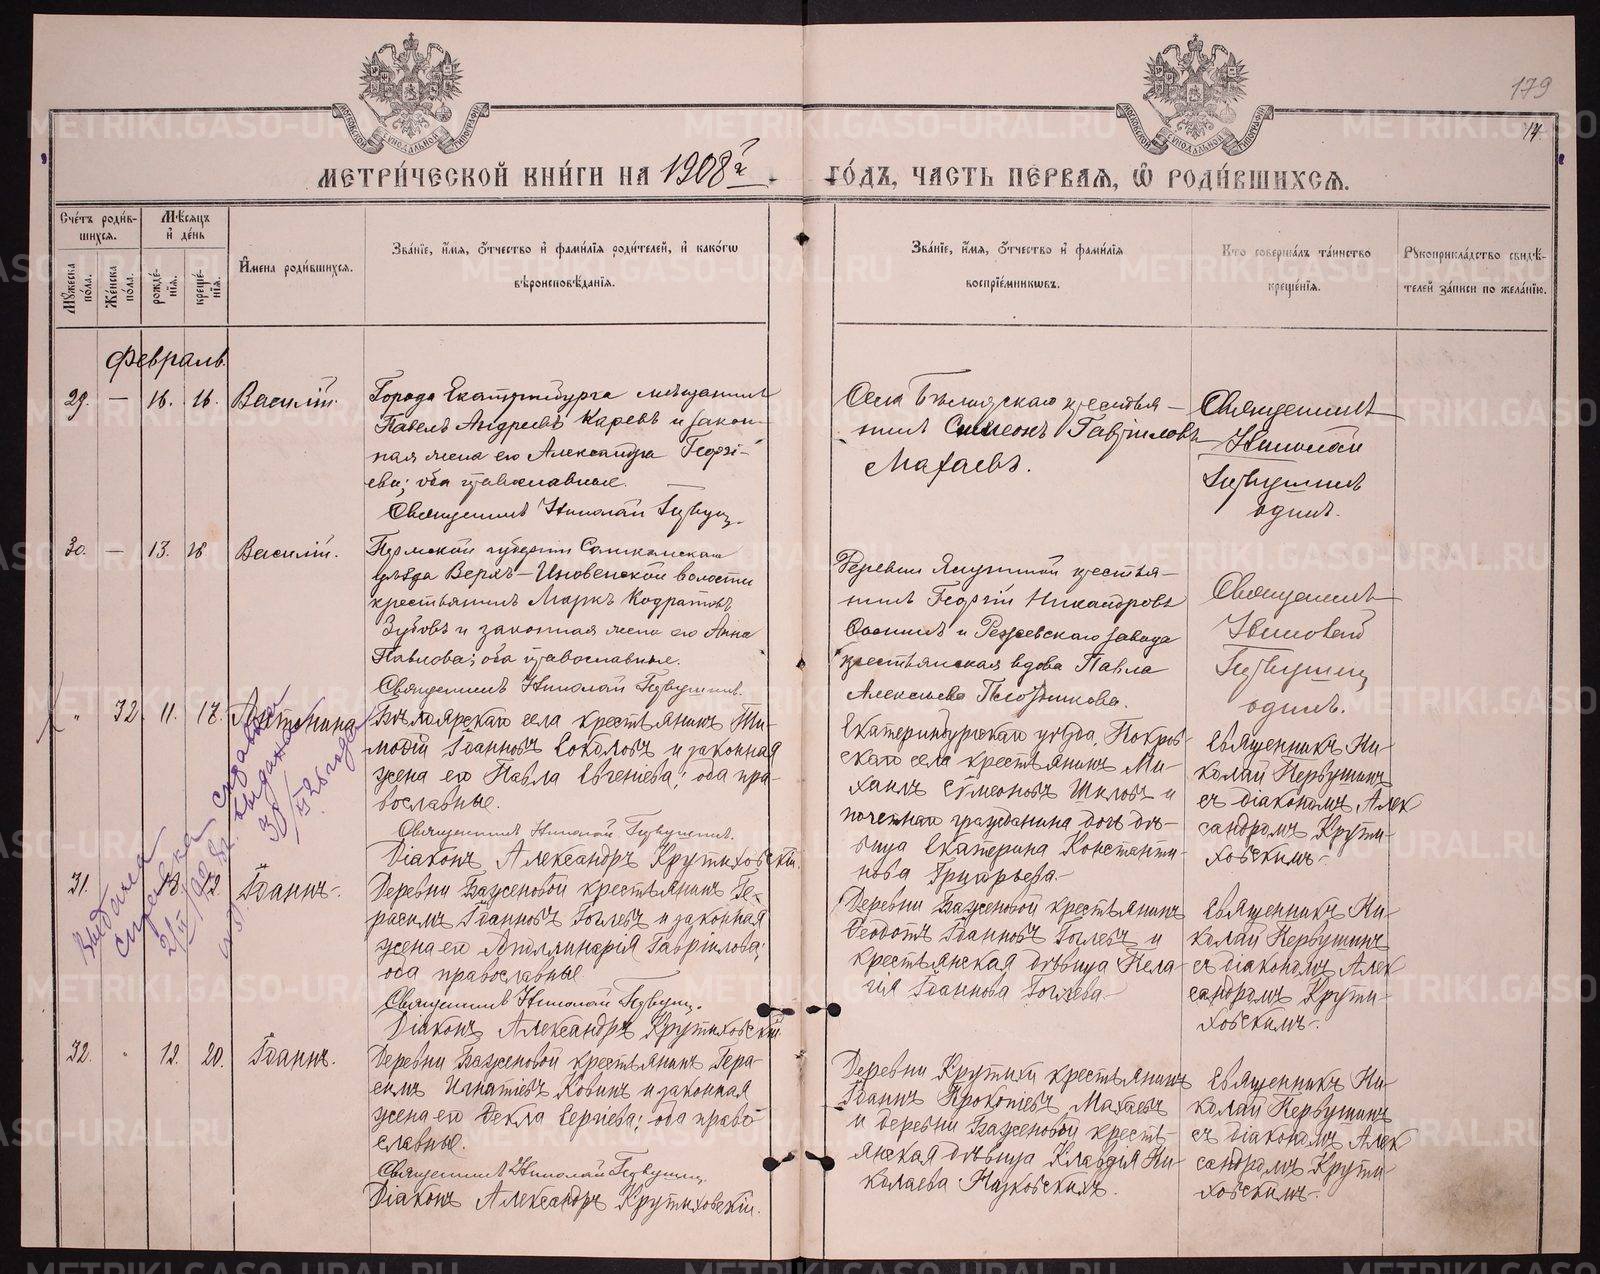 179
14.
МЕТРИ́ЧЕСКОЙ КНИ́ГИ НА 1908й ГО́ДЪ, ЧАСТЬ ПЕ́РВАЯ, Ѿ РОДИ́ВШИХСЯ.
Сче́тъ роди́в-
шихся.
Мꙋжеска по́ла.
Же́нска по́ла.
Мѣ́сяцъ
и де́нь
рожде́-
нїя.
креще́-
нїя.
И҆мена роди́вшихся.
Зва́нїе, и҆́мя, ѻ҆́тчество и҆ фами́лїя роди́телей, и҆ како́гѡ
вѣроисповѣ́данїя.
Зва́нїе, и҆́мя, ѻ҆́тчество и҆ фами́лїя
воспрїе́мникѡвъ.
Кто соверша́лъ та́инство
креще́нїя.
Рꙋкоприкла́дство свидѣ́-
телей за́писи по жела́нїю.
Февраль.
29. — 16. 16. Василій.
Города Екатеринбурга мѣщанинъ
Павелъ Андреевъ Каревъ и закон-
ная жена его Александра Георгі-
ева; оба православные.
Священникъ Николай Первуш.
Села Бѣлоярскаго крестья-
нинъ Симеонъ Гавриловъ
Махаевъ.
Священникъ
Николай
Первушинъ
одинъ.
30. — 13. 16 Василій.
Пермской губерніи Соликамскаго
уѣзда Верхъ-Иньвенской волости
крестьянинъ Маркъ Кодратовъ
Зубовъ и законная жена его Анна
Павлова; оба православные.
Священникъ Николай Первушинъ.
Деревни Ялуниной крестья-
нинъ Георгій Никандровъ
и Режевскаго завода
крестьянская вдова Павла
Алексѣева Плотникова.
Священникъ
Николай
Первушин
одинъ.
" 32. 11. 17. Антонина
Бѣлоярскаго села крестьянинъ Ти-
мофій Іоанновъ Соколовъ и законная
жена его Павла Евгеніева; оба пра-
вославные.
Священникъ Николай Первушинъ.
Діаконъ Александръ Крутиховскій.
Екатеринбургскаго уѣзда, Покров-
скаго села крестьянинъ Ми-
хаилъ Сѵмеоновъ Шиловъ и
почетнаго гражданина дочь дѣ-
вица Екатерина Константи-
нова Григорьева.
Священникъ Ни-
колай Первушинъ
съ діакономъ Алек
сандромъ Крути-
ховскимъ.
справка
выдана
30/VI 25 года
Выдана
справка
31. 13 Іоаннъ.
Деревни Баженовой крестьянинъ Ге-
расимъ Іоанновъ Гогл​евъ и законная
жена его Аполлинарія Гавріилова;
оба православные
Священникъ Николай Первуш.
Діаконъ Александръ Крутиховскій
Деревни Баженовой крестьянинъ
Феодотъ Іоанновъ Гоглевъ и
крестьянская дѣвица Пела-
гія Іоаннова Гоглева.
Священникъ Ни-
колай Первушинъ
съ діакономъ Алек
сандромъ Крути-
ховскимъ.
32. " 12. 20. Іоаннъ.
Деревни Баженовой крестьянинъ Гера-
симъ Игнатіевъ Ковинъ и законная
жена его Ѳекла Сергіева; оба право-
славные.
Священникъ Николай Первушин.
Діаконъ Александръ Крутиховскій.
Деревни Крутихи крестьянинъ
Іоаннъ Прокопіевъ Махаевъ
и деревни Баженовой кресть-
янская дѣвица Клавдія Ни-
колаева
Священникъ Ни-
колай Первушинъ
съ діакономъ Алек
сандромъ Крути-
ховскимъ.
METRIKI.GASO-URAL.RU